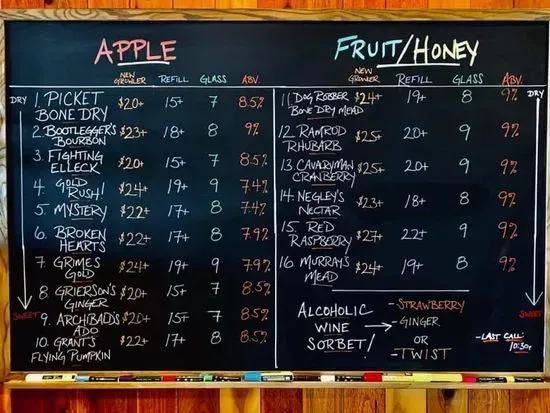 APPLE
NEW GROWLER REFILL GLASS ABV.
DRY
1. PICKET BONE DRY $20+ 15+ 7 8.5%
2. BOOTLEGGER'S BOURBON $23+ 18+ 8 9%
3. FIGHTING ELLECK $20+ 15+ 7 8.5%
4. GOLD RUSH! $24+ 19+ 9 7.4%
5. MYSTERY $22+ 17+ 8 7.4%
6. BROKEN HEARTS $22+ 17+ 8 7.9%
7. GRIMES GOLD $24+ 19+ 9 7.9%
8. GRIERSON'S GINGER $20+ 15+ 7 8.5%
9. ARCHIBALD'S ADO $20+ 15+ 7 8.5%
10. GRANT'S FLYING PUMPKIN $22+ 17+ 8 8.5%
SWEET
FRUIT/HONEY
NEW GROWLER REFILL GLASS ABV.
DRY
11. DOG ROBBER BONE DRY MEAD $24+ 19+ 8 9%
12. RAMROD RHUBARB $25+ 20+ 9 9%
13. CAVALRYMAN CRANBERRY $25+ 20+ 9 9%
14. NEGLEY'S NECTAR $23+ 18+ 8 9%
15. RED RASPBERRY $27+ 22+ 9 9%
16. MURRAY'S MEAD $24+ 19+ 8 9%
SWEET
ALCOHOLIC WINE SORBET!
-STRAWBERRY
-GINGER
OR
-TWIST
-LAST CALL:
10:30+